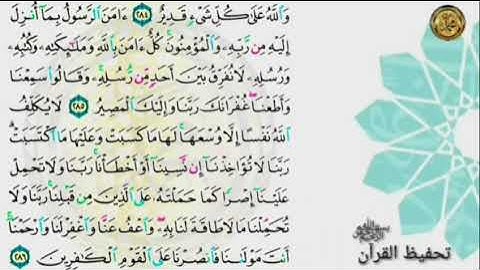 وَٱللَّهُ عَلَىٰ كُلِّ شَىْءٍ قَدِيرٌ ٢٨٤ ءَامَنَ ٱلرَّسُولُ بِمَآ أُنزِلَ
إِلَيْهِ مِن رَّبِّهِۦ وَٱلْمُؤْمِنُونَ ۚ كُلٌّ ءَامَنَ بِٱللَّهِ وَمَلَـٰٓئِكَتِهِۦ وَكُتُبِهِۦ
وَرُسُلِهِۦ لَا نُفَرِّقُ بَيْنَ أَحَدٍ مِّن رُّسُلِهِۦ ۚ وَقَالُوا۟ سَمِعْنَا
وَأَطَعْنَا ۖ غُفْرَانَكَ رَبَّنَا وَإِلَيْكَ ٱلْمَصِيرُ ٢٨٥ لَا يُكَلِّفُ
ٱللَّهُ نَفْسًا إِلَّا وُسْعَهَا ۚ لَهَا مَا كَسَبَتْ وَعَلَيْهَا مَا ٱكْتَسَبَتْ ۗ
رَبَّنَا لَا تُؤَاخِذْنَآ إِن نَّسِينَآ أَوْ أَخْطَأْنَا ۚ رَبَّنَا وَلَا تَحْمِلْ
عَلَيْنَآ إِصْرًا كَمَا حَمَلْتَهُۥ عَلَى ٱلَّذِينَ مِن قَبْلِنَا ۚ رَبَّنَا وَلَا
تُحَمِّلْنَا مَا لَا طَاقَةَ لَنَا بِهِۦ ۖ وَٱعْفُ عَنَّا وَٱغْفِرْ لَنَا وَٱرْحَمْنَآ ۚ
أَنتَ مَوْلَىٰنَا فَٱنصُرْنَا عَلَى ٱلْقَوْمِ ٱلْكَـٰفِرِينَ ٢٨٦
تحفيظ القرآن